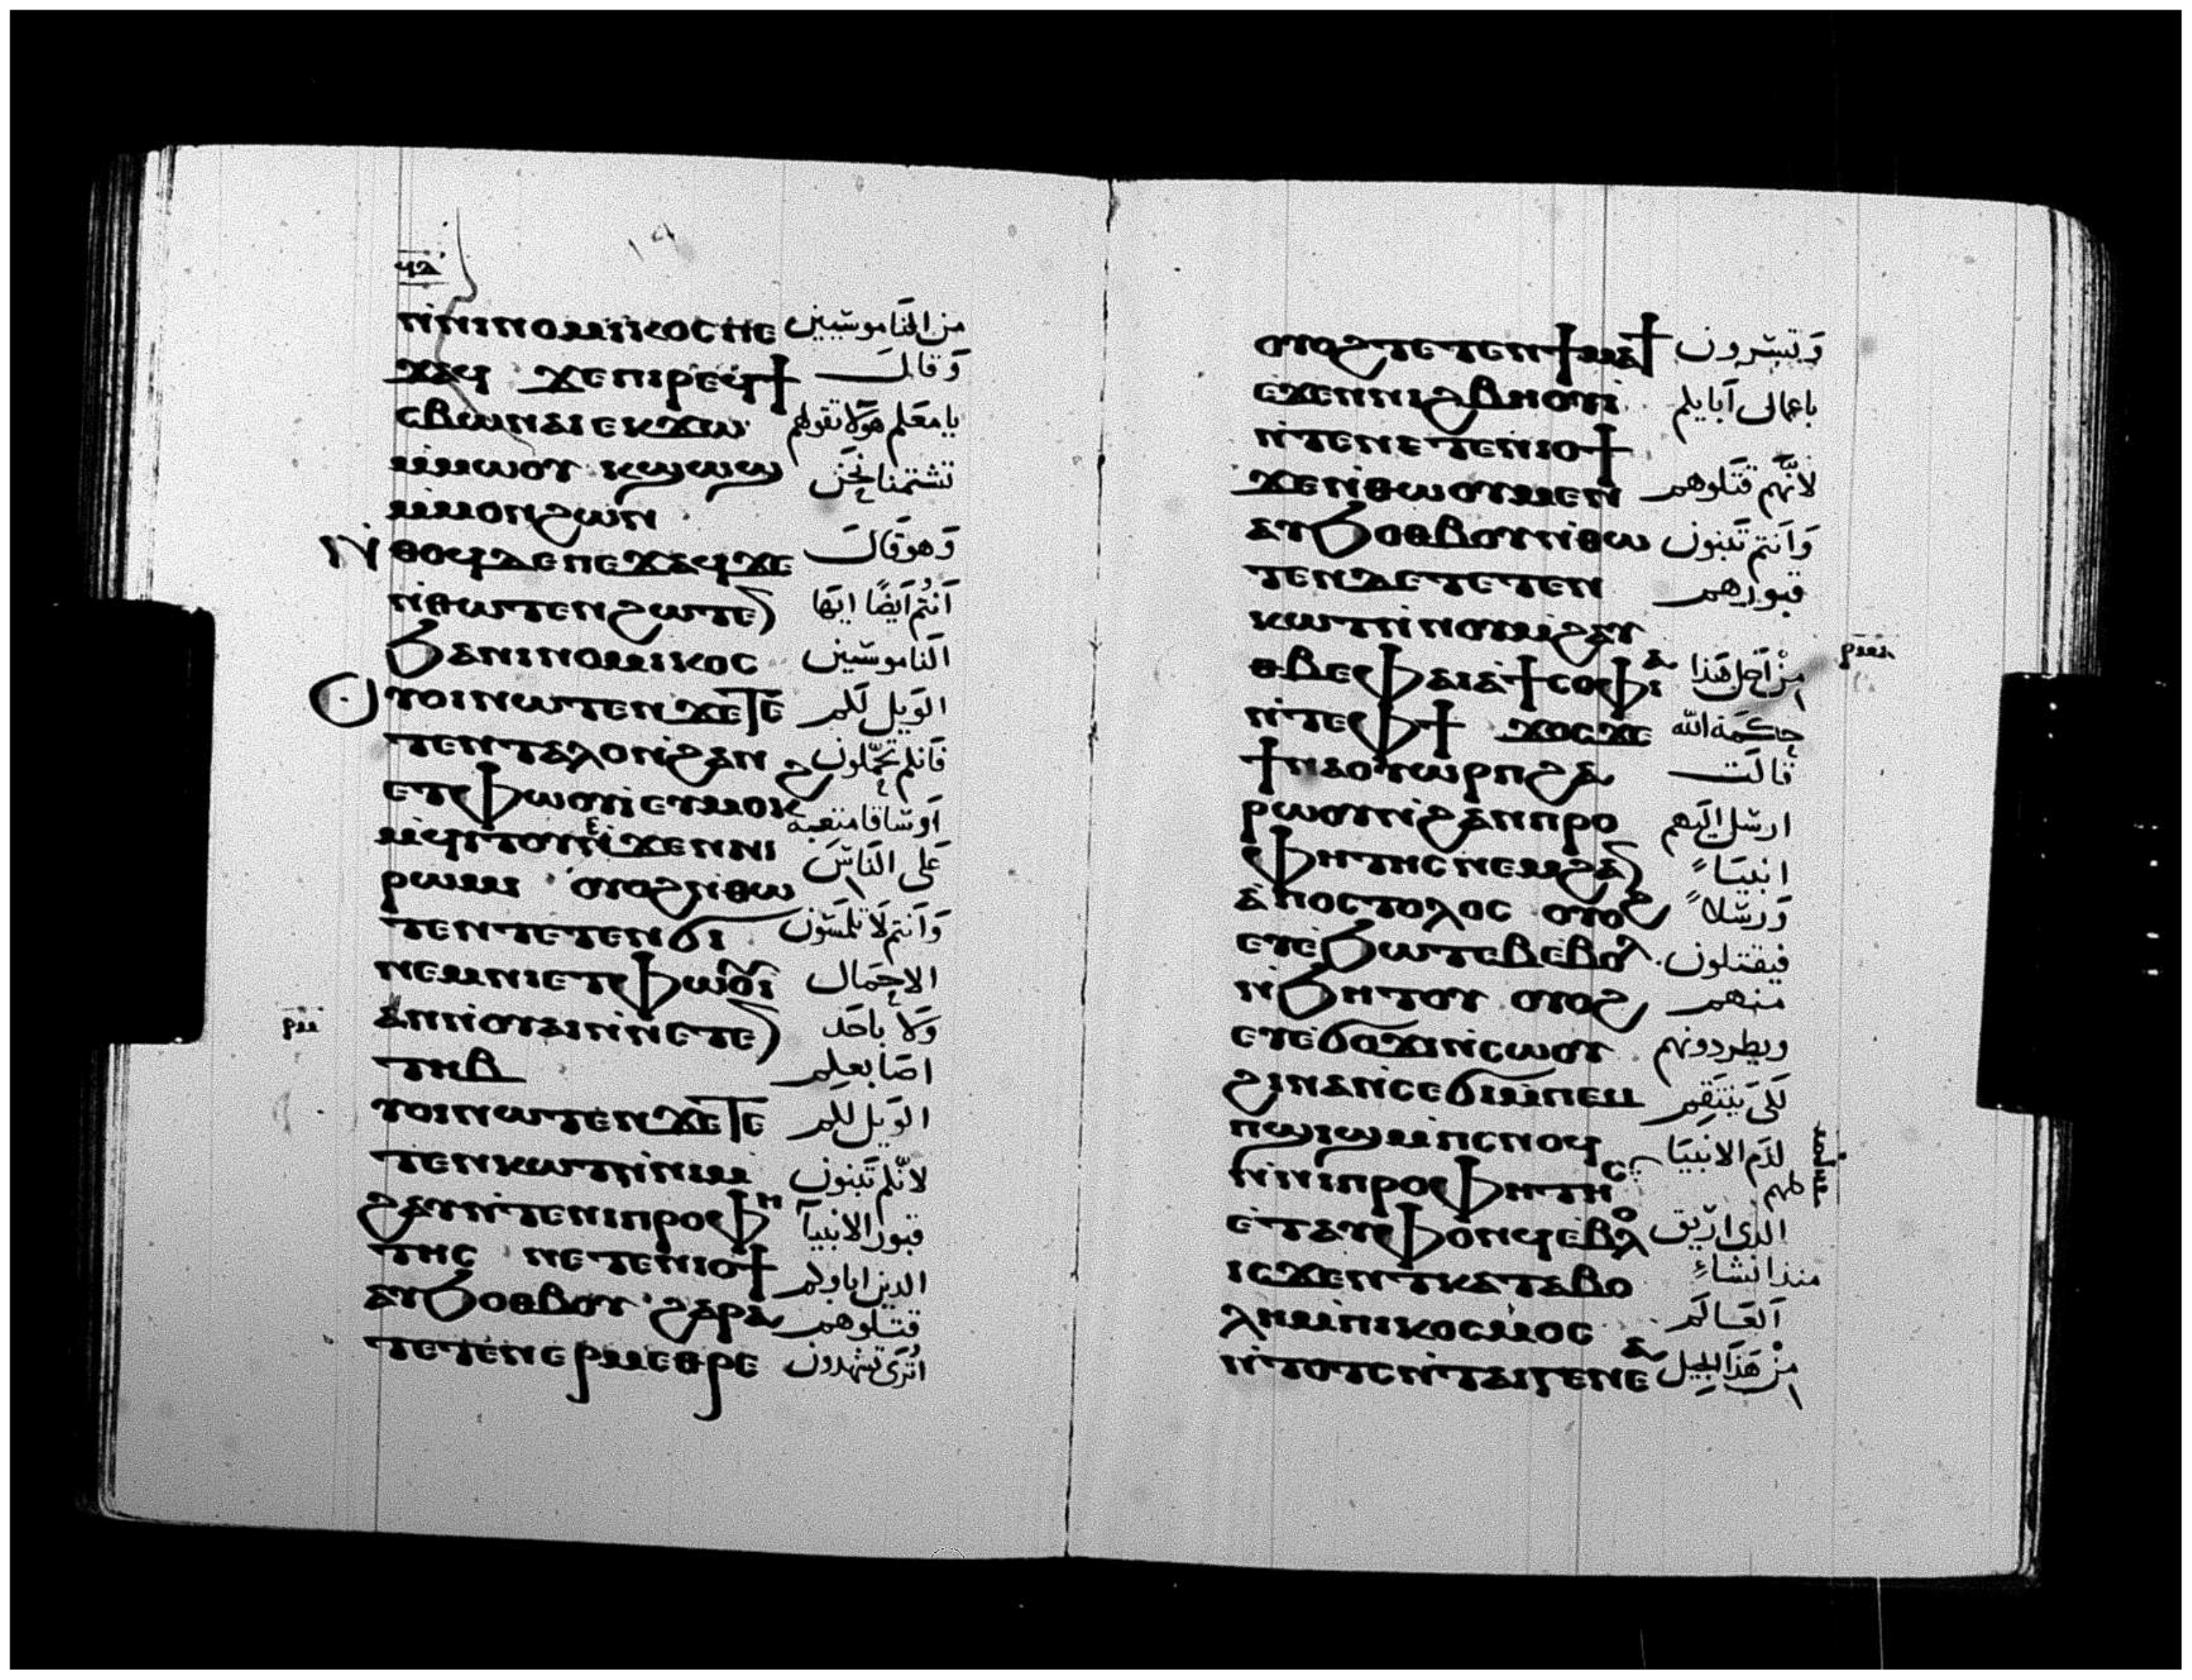 ϥⲁ
ⲛ̀ⲛⲓⲛⲟⲙⲓⲕⲟⲥ ⲡⲉ من الناموسيين
ϫⲁϥ ϫⲉ ⲡⲓⲣⲉϥϯ وقال
ⲥⲃⲱ ⲛⲁⲓ ⲉⲕϫⲱ يا معلم هولا تقولهم
ⲙ̀ⲙⲱⲟⲩ ⲕϣⲱϣ تشتمنا نحن
ⲙ̀ⲙⲟⲛ ϩⲱⲛ
ⲛ̀ⲑⲟϥ ⲇⲉ ⲡⲉϫⲁϥ ϫⲉ وهو قال
ⲛ̀ⲑⲱⲧⲉⲛ ϩⲱⲧⲉⲛ انتم ايضا ايها
ϧⲁ ⲛⲓⲛⲟⲙⲓⲕⲟⲥ الناموسيين
ⲟⲩⲟⲓ ⲛⲱⲧⲉⲛ ϫⲉ ⲧⲉ الويل لكم
ⲧⲉⲛⲧⲁⲗⲟ ⲛ̀ϩⲁⲛ فانكم تحملون
ⲉⲧⲫⲱⲟⲩⲓ ⲉⲩⲙⲟⲕϩ اوساقا متعبة
ⲙ̀ϥⲓⲧⲟⲩ ⲉ̀ϫⲉⲛ ⲛⲓ على الناس
ⲣⲱⲙⲓ ⲟⲩⲟϩ ⲛ̀ⲑⲱ
ⲧⲉⲛ ⲧⲉⲧⲉⲛϭⲓ وانتم لا تلمسون
ⲛⲉⲙ ⲛⲓⲉⲧⲫⲱⲟⲩⲓ الاحمال
ⲁⲛ ⲛ̀ⲟⲩⲁⲓ ⲛ̀ⲛⲉⲧⲉⲛ ولا باحد
ⲧⲏⲃ اصابعكم
ⲟⲩⲟⲓ ⲛⲱⲧⲉⲛ ϫⲉ ⲧⲉ الويل لكم
ⲧⲉⲛⲕⲱⲧ ⲛ̀ⲛⲓⲙ̀ لانكم تبنون
ϩⲁⲩ ⲛ̀ⲧⲉ ⲛⲓⲡⲣⲟⲫⲏ قبور الانبيا
ⲧⲏⲥ ⲛⲉⲧⲉⲛⲓⲟϯ الذين اباوكم
ⲁⲩϧⲟⲑⲃⲟⲩ ϩⲁⲣⲁ قتلوهم
ⲧⲉⲧⲉⲛⲉⲣⲙⲉⲑⲣⲉ اترى تشهدون
ⲟⲩⲟϩ ⲧⲉⲧⲉⲛϯⲙⲁϯ وتسرون
ⲉ̀ϫⲉⲛ ⲛⲓϩⲃⲏⲟⲩⲓ باعمال ابايكم
ⲛ̀ⲧⲉ ⲛⲉⲧⲉⲛⲓⲟϯ
ϫⲉ ⲛ̀ⲑⲱⲟⲩ ⲙⲉⲛ لانهم قتلوهم
ⲁⲩϧⲟⲑⲃⲟⲩ ⲛ̀ⲑⲱ وانتم تبنون
ⲧⲉⲛ ⲇⲉ ⲧⲉⲧⲉⲛ قبورهم
ⲕⲱⲧ ⲛ̀ⲛⲟⲩⲙ̀ϩⲁⲩ
ⲉⲑⲃⲉ ⲫⲁⲓ ⲁ̀ ϯⲥⲟⲫⲓⲁ من اجل هذا
ⲛ̀ⲧⲉ ⲫϯ ϫⲟⲥ ϫⲉ حكمة الله
ϯⲛⲁⲟⲩⲱⲣⲡ ϩⲁ قالت
ⲣⲱⲟⲩ ⲛ̀ϩⲁⲛⲡⲣⲟ ارسل اليهم
ⲫⲏⲧⲏⲥ ⲛⲉⲙ ϩⲁⲛ انبياً
ⲁ̀ⲡⲟⲥⲧⲟⲗⲟⲥ ⲟⲩⲟϩ ورسلاً
ⲉⲩⲉ̀ϧⲱⲧⲉⲃ ⲉ̀ⲃⲟⲗ فيقتلون
ⲛ̀ϧⲏⲧⲟⲩ ⲟⲩⲟϩ منهم
ⲉⲩⲉ̀ϭⲟϫⲓ ⲛ̀ⲥⲱⲟⲩ ويطردونهم
ϩⲓⲛⲁ ⲛ̀ⲥⲉϭⲓ ⲙ̀ⲡⲉⲙ لكي ينتقم
ⲡϣⲓϣ ⲙ̀ⲡⲥⲛⲟϥ لدم الانبيا
ⲛ̀ⲛⲓⲡⲣⲟⲫⲏⲧⲏⲥ كلهم
ⲉ̀ⲧⲁⲩⲫⲟⲛϥ ⲉ̀ⲃⲟⲗ الذى اريق
ⲓⲥϫⲉⲛ ⲧⲕⲁⲧⲁⲃⲟ منذ انشاء
ⲗⲏ ⲙ̀ⲡⲓⲕⲟⲥⲙⲟⲥ العالم
ⲛ̀ⲧⲟⲧⲥ ⲛ̀ⲧⲁⲓⲅⲉⲛⲉⲁ من هذا الجيل